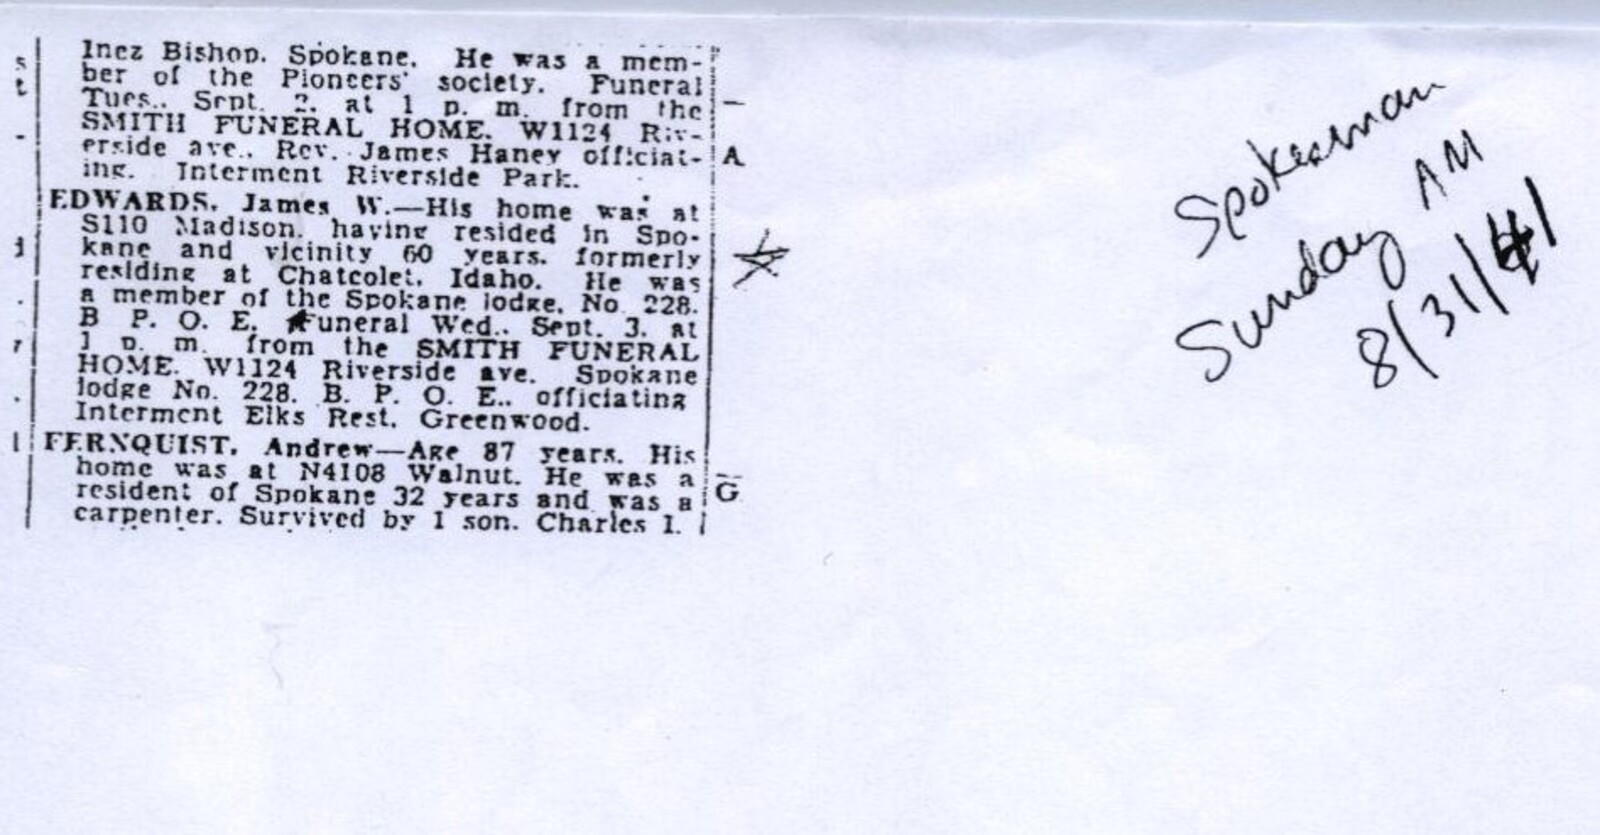 Inez Bishop. Spokane. He was a mem-
ber of the Pioneers' society. Funeral
Tues., Sept. 2, at 1 p. m. from the
SMITH FUNERAL HOME. W1124 Riv-
erside ave., Rev. James Haney officiat-
ing. Interment Riverside Park.
EDWARDS, James W.—His home was at
S110 Madison, having resided in Spo-
kane and vicinity 60 years, formerly
residing at Chatcolet, Idaho. He was
a member of the Spokane lodge, No. 228,
B P. O. E. Funeral Wed., Sept. 3, at
1 p. m. from the SMITH FUNERAL
HOME. W1124 Riverside ave. Spokane
lodge No. 228, B. P. O. E., officiating
Interment Elks Rest, Greenwood.
FERNQUIST, Andrew—Age 87 years. His
home was at N4108 Walnut. He was a
resident of Spokane 32 years and was a
carpenter. Survived by 1 son, Charles I.
s
t
-
A
r
l
G
Spokesman
Sunday AM
8/31/41